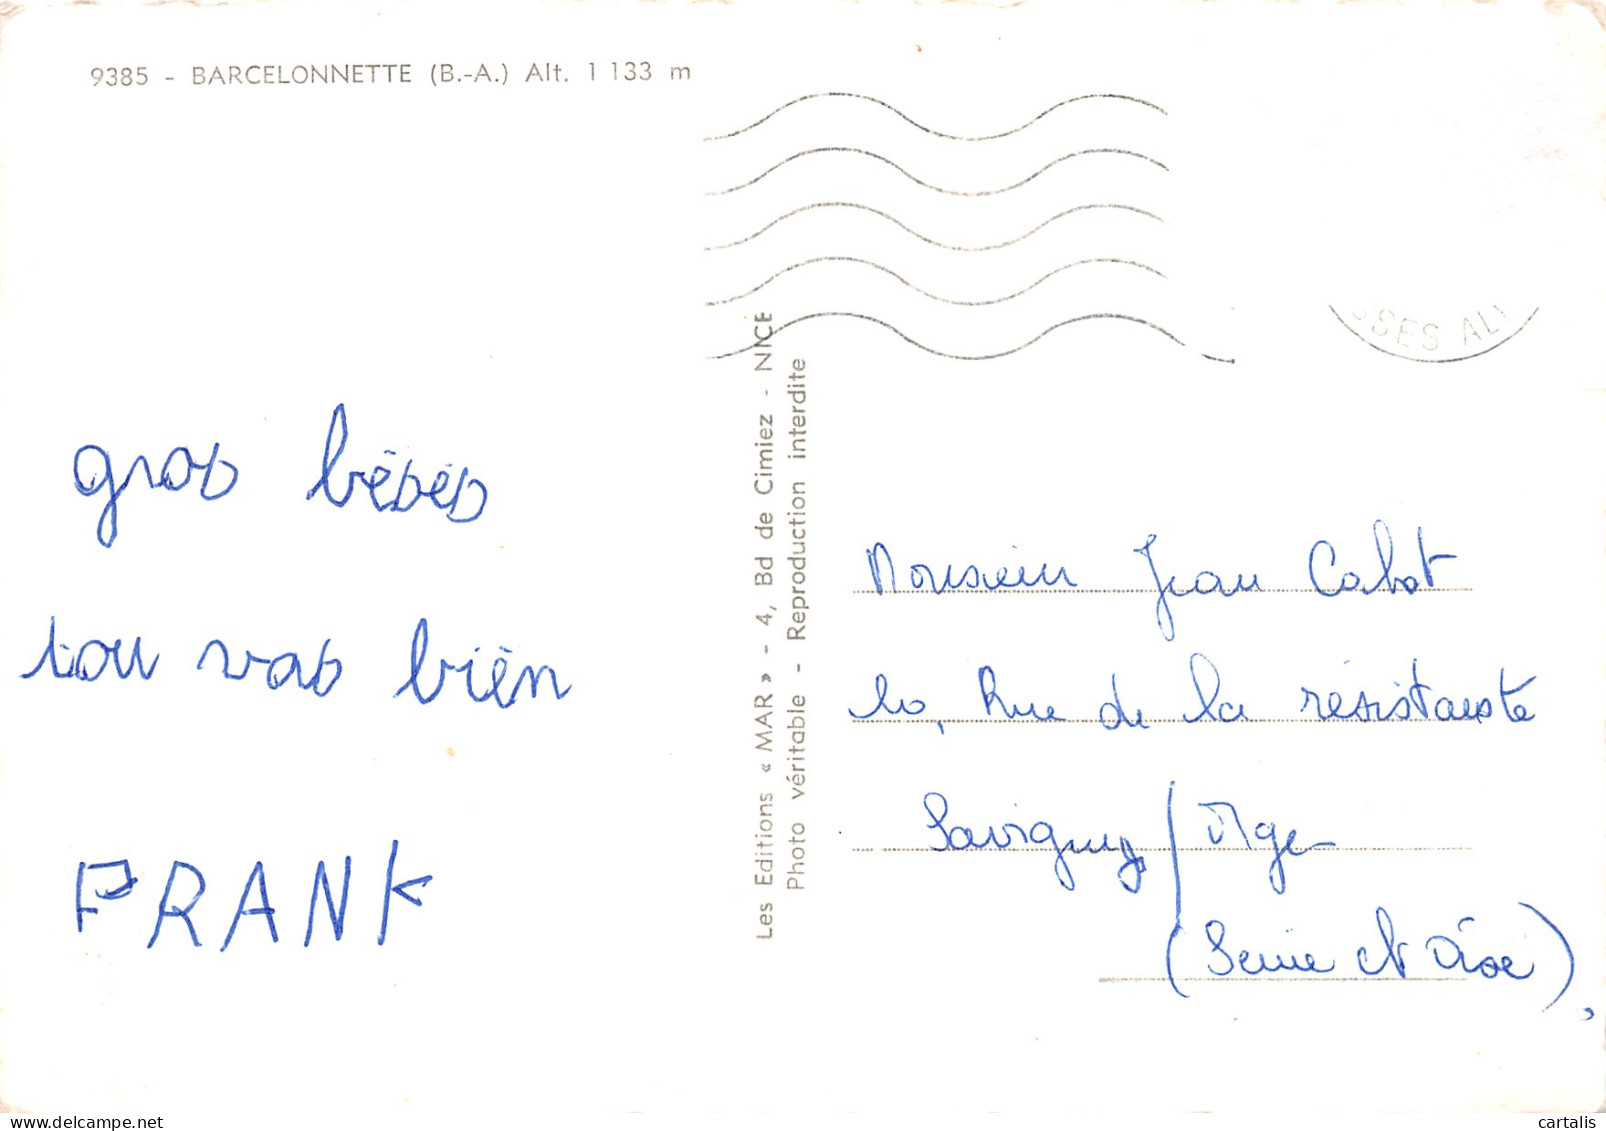 9385 - BARCELONNETTE (B.-A.) Alt. 1 133 m
SSES AL
gros bésés
tou vas bién
FRANK
Les Editions « MAR » - 4, Bd de Cimiez - NICE
Photo véritable - Reproduction interdite
Monsieur Jean Cabot
Rue de la résistanste
Savigny / Orge
(Seine et Oise)
cartalis